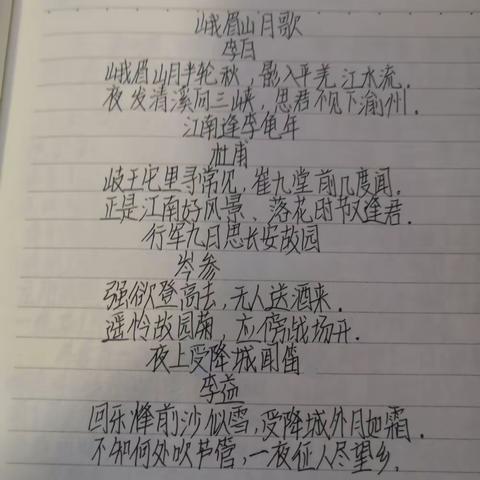 峨眉山月歌
李白
峨眉山月半轮秋，影入平羌江水流．
夜发清溪向三峡，思君不见下渝州．
江南逢李龟年
杜甫
岐王宅里寻常见，崔九堂前几度闻．
正是江南好风景、落花时节又逢君．
行军九日思长安故园
岑参
强欲登高去，无人送酒来．
遥怜故园菊，应傍战场开．
夜上受降城闻笛
李益
回乐烽前沙似雪，受降城外月如霜．
不知何处吹芦管，一夜征人尽望乡．